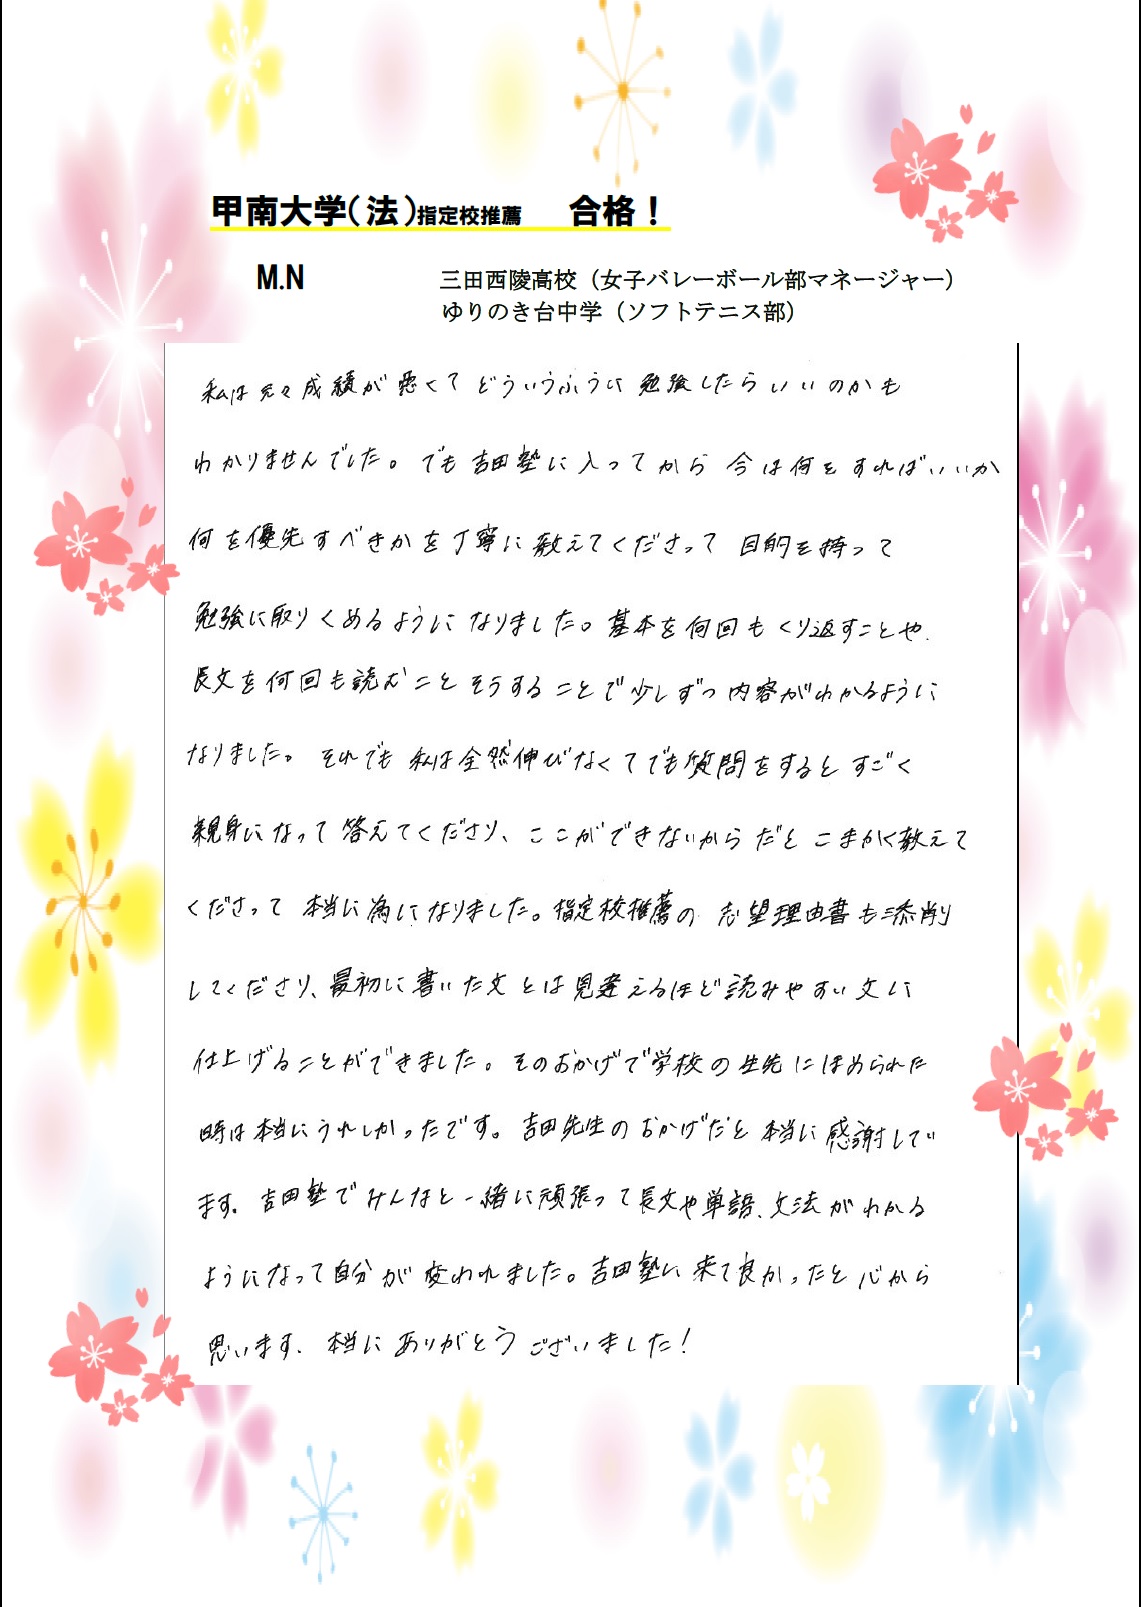 甲南大学(法)指定校推薦 合格!
M.N 三田西陵高校(女子バレーボール部マネージャー)
ゆりのき台中学(ソフトテニス部)
私は元々成績が悪くてどういうふうに勉強したらいいのかも
わかりませんでした。でも吉田塾に入ってから今は何をすればいいか
何を優先すべきかを丁寧に教えてくださって目的を持って
勉強に取りくめるようになりました。基本を何回もくり返すことや、
長文を何回も読むことそうすることで少しずつ内容がわかるように
なりました。それでも私は全然伸びなくてでも質問をするとすごく
親身になって答えてくださり、ここができないからだとこまかく教えて
くださって本当に為になりました。指定校推薦の志望理由書も添削
してくださり、最初に書いた文とは見違えるほど読みやすい文に
仕上げることができました。そのおかげで学校の先生にほめられた
時は本当にうれしかったです。吉田先生のおかげだと本当に感謝してい
ます。吉田塾でみんなと一緒に頑張って長文や単語、文法がわかる
ようになって自分が変われました。吉田塾に来て良かったと心から
思います、本当にありがとうございました!